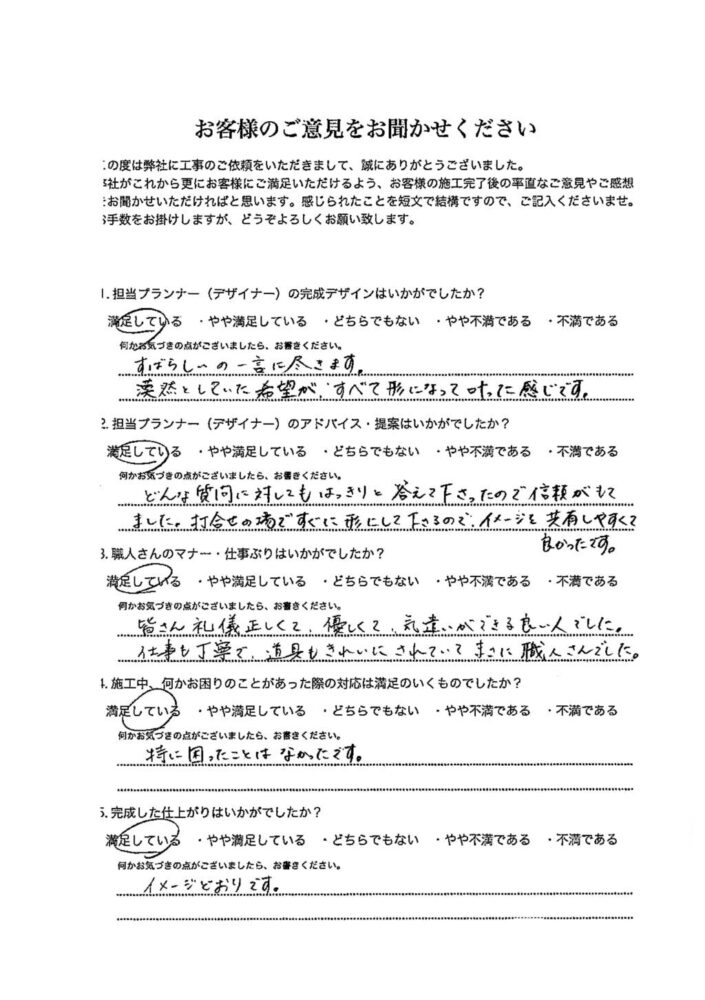 お客様のご意見をお聞かせください
の度は弊社に工事のご依頼をいただきまして、誠にありがとうございました。
社がこれから更にお客様にご満足いただけるよう、お客様の施工完了後の率直なご意見やご感想
お聞かせいただければと思います。感じられたことを短文で結構ですので、ご記入くださいませ。
手数をお掛けしますが、どうぞよろしくお願い致します。
1. 担当プランナー（デザイナー）の完成デザインはいかがでしたか？
満足している ・やや満足している ・どちらでもない ・やや不満である ・不満である
何かお気づきの点がございましたら、お書きください。
すばらしいの一言に尽きます。
漠然としていた希望が、すべて形になって叶った感じです。
2. 担当プランナー（デザイナー）のアドバイス・提案はいかがでしたか？
満足している ・やや満足している ・どちらでもない ・やや不満である ・不満である
何かお気づきの点がございましたら、お書きください。
どんな質問に対してもはっきりと答えて下さったので信頼がもて
ました。打合せの場ですぐに形にして下さるので、イメージを共有しやすくて
良かったです。
3. 職人さんのマナー・仕事ぶりはいかがでしたか？
満足している ・やや満足している ・どちらでもない ・やや不満である ・不満である
何かお気づきの点がございましたら、お書きください。
皆さん礼儀正しくて、優しくて、気遣いができる良い人でした。
仕事も丁寧で、道具もきれいにされていてまさに職人さんでした。
4. 施工中、何かお困りのことがあった際の対応は満足のいくものでしたか？
満足している ・やや満足している ・どちらでもない ・やや不満である ・不満である
何かお気づきの点がございましたら、お書きください。
特に困ったことはなかったです。
5. 完成した仕上がりはいかがでしたか？
満足している ・やや満足している ・どちらでもない ・やや不満である ・不満である
何かお気づきの点がございましたら、お書きください。
イメージどおりです。